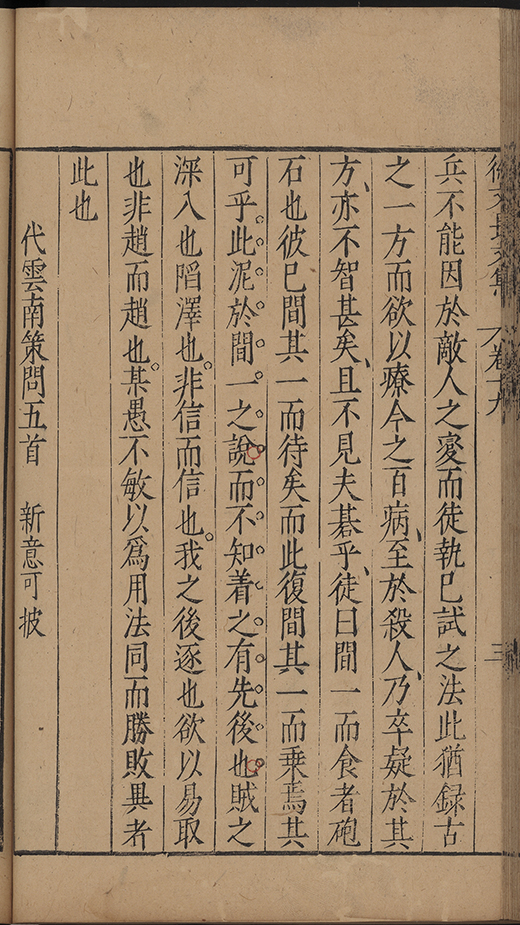 徐文長文集 卷十九 三
兵不能因於敵人之變而徒執已試之法此猶録古
之一方而欲以療今之百病、至於殺人、乃卒疑於其
方、亦不智甚矣、且不見夫碁乎、徒曰間一而食者砲
石也彼已間其一而待矣而此復間其一而乗焉其
可乎。此泥於間一之說而不知着之有先後也賊之
深入也陷澤也。非信而信也。我之後逐也欲以易取
也非趙而趙也。某愚不敏以為用法同而勝敗異者
此也
代雲南策問五首 新意可披